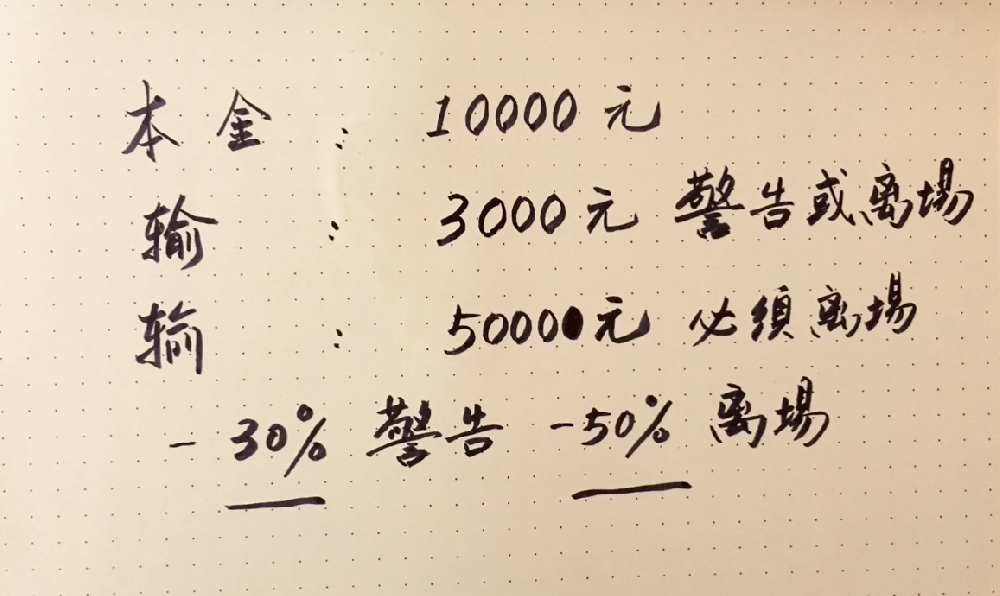 本金: 10000元
输: 3000元 警告或离場
输: 5000元 必須离場
-30% 警告 -50% 离場